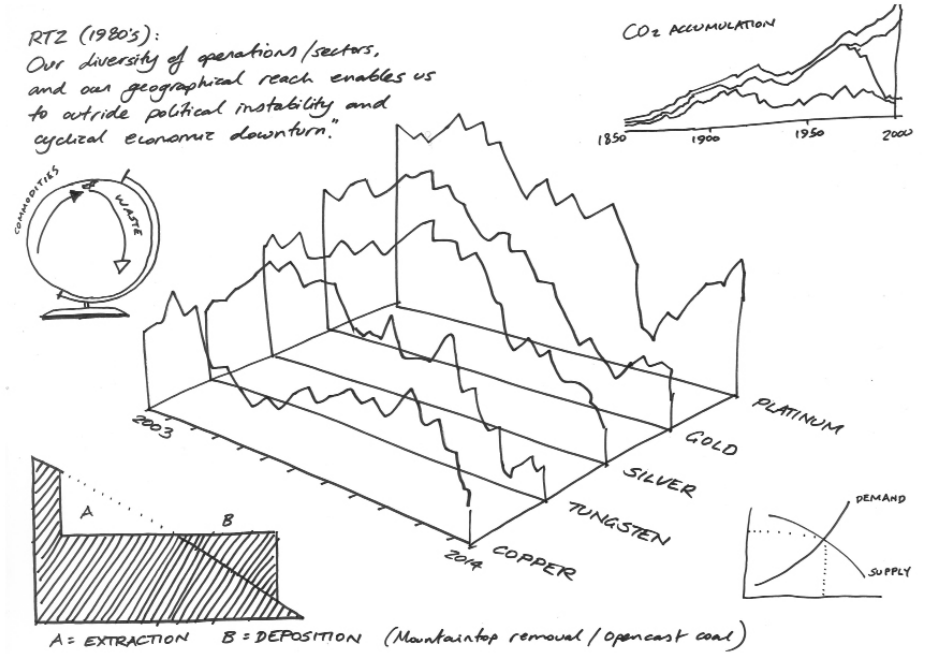 RTZ (1980's):
Our diversity of operations/sectors,
and our geographical reach enables us
to outride political instability and
cyclical economic downturn."
CO2 ACCUMULATION
1850
1900
1950
2000
COMMODITIES
WASTE
2003
2014
PLATINUM
GOLD
SILVER
TUNGSTEN
COPPER
A
B
DEMAND
SUPPLY
A = EXTRACTION B = DEPOSITION (Mountaintop removal / Opencast coal)